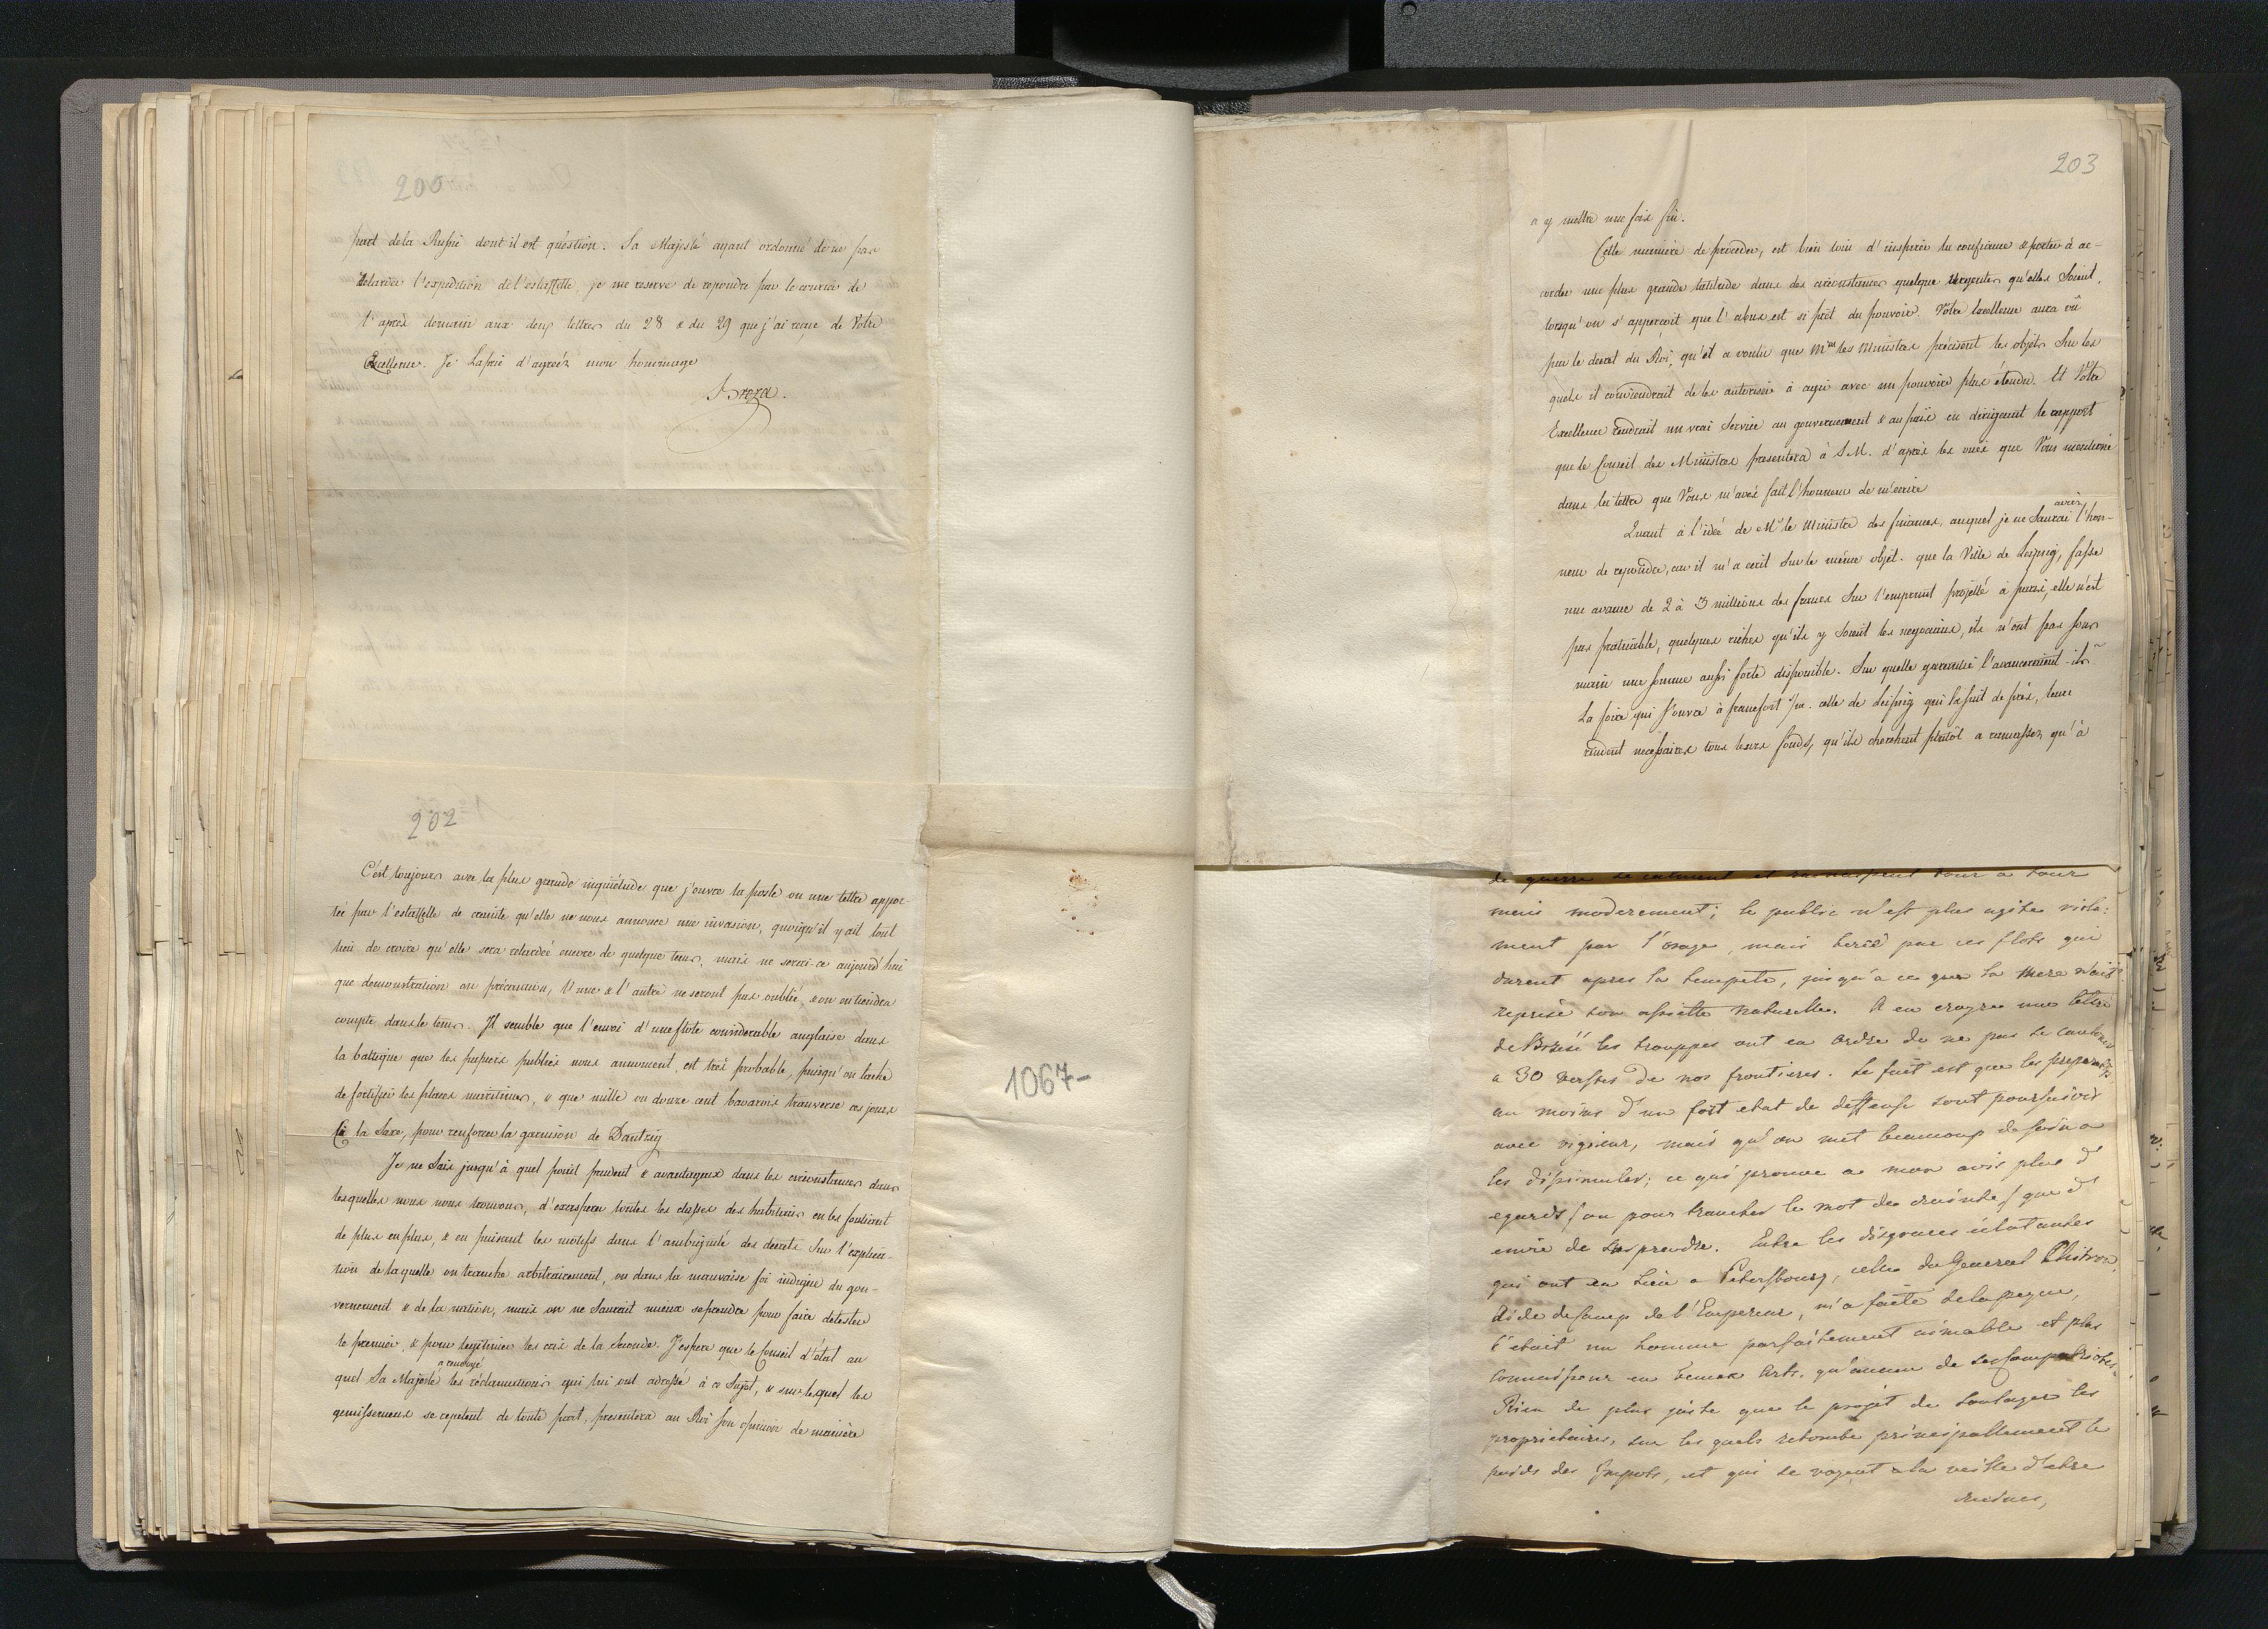 200
part de la Russie dont il est question. Sa Majesté ayant ordonné de ne pas
retarder l'expedition de l'estaffette, je me reserve de repondre par le courier de
l'après demain aux deux lettres du 28 & du 29 que j'ai reçue de Votre
Excellence. Je La prie d'agréer mon hommage
Breza.
202
C'est toujours avec la plus grande inquiétude que j'ouvre la poste ou une lettre appor-
tée par l'estaffette de crainte qu'elle ne nous annonce une invasion, quoiqu'il y ait tout
lieu de croire qu'elle sera retardée encore de quelque tems, mais ne serai-ce aujourd'hui
que demonstration ou précaution, l'une & l'autre ne seront pas oublié, & on en tiendra
compte dans le tems. Il semble que l'envoi d'une flote considerable anglaise dans
la baltique que les papiers publics nous annoncent, est très probable, puisqu'on tache
de fortifier les places maritimes, & que mille ou douze cent bavarois traverse ces jours
ci la Saxe, pour renforcer la garnison de Dantzig
Je ne Sais jusqu'à quel point prudent & avantageux dans les circonstances dans
lesquelles nous nous trouvons, d'exasperer toutes les classes des habitans en les foulant
de plus en plus, & en puisant les motifs dans l'ambiguité des decrets Sur l'explica-
tion de laquelle on tranche arbitrairement, ou dans la mauvaise foi indigne du gou-
vernement & de la nation, mais on ne Saurait mieux se prendre pour faire detester
le premier, & pour legitimer les cris de la Seconde. J'espere que le Conseil d'état au
a renvoyé
quel Sa Majesté les réclamations qui lui ont adressé à ce Sujet, & sur lequel les
gemissemens se repetent de toute part, presentera au Roi son opinion de manière
1067-
203
a y mettre une fois fin.
Cette manière de proceder, est bien loin d'inspirer la confiance & porter à ac-
corder une plus grande latitude dans des circonstances quelque urgentes qu'elles Soient,
lorsqu'on s'apperçoit que l'abus est si prêt du pouvoir. Votre Excellence aura vû
par le decret du Roi, qu'il a voulu que Mrs les Ministres précisent les objets Sur les
quels il conviendrait de les autoriser à agir avec un pouvoir plus étendu. Et Votre
Excellence rendrait un vrai Service au gouvernement & au païs en dirigeant le rapport
que le Conseil des Ministres presentera à S.M. d'après les vues que Vous mentionné
dans la lettre que Vous m'avés fait l'honneur de m'ecrire
avoir
Quant à l'idée de Mr le Ministre des finances, auquel je ne Saurai l'hon-
neur de repondre, car il m'a ecrit Sur le même objet. que la Ville de Leipzig, fasse
une avance de 2 à 3 millions des francs Sur l'emprunt projetté à paris, elle n'est
pas praticable, quelques riches qu'ils y Soient les negocians, ils n'ont pas Sous
main une somme aussi forte disponible. Sur quelle garantie l'avanceroient-ils
La foire qui s'ouvre à francfort s/m. celle de Leipzig qui la suit de près, leurs
rendent necessaires tous leurs fonds, qu'ils cherchent plutôt a ramasser, qu'à
de guerre se calment et tour a tour
mais moderement; le public n'est plus agité viole:
ment par l'orage, mais bercé par ces flots qui
durent apres la tempete, jusqu'a ce que la mere n'ait
reprise son assiette naturelle. A en croyre une lettre
de Brzesć les trouppes ont eu ordre de ne pas se cantoner
a 30 verstes de nos frontieres. Le fait est que les preparatifs
au moins d'un fort etat de deffense sont poursuivis
avec vigueur, mais qu'on met beaucoup de soin a
les dissimuler; ce qui prouve a mon avis plus d'
egards (ou pour trancher le mot de crainte) que d'
envie de surprendre. Entre les disgraces éclatantes
qui ont eu lieu a Petersbourg, celle du General Chitrow
Aide de Camp de l'Empereur, m'a faite de la peine,
c'etait un homme parfaitement aimable et plus
connaisseur en beaux Arts, qu'aucun de ses Compatriotes.
Rien de plus juste que le projet de soulager les
proprietaires, sur les quels retombe principallement le
poids des Impots, et qui se voyent a la veille d'etre
ruinés,